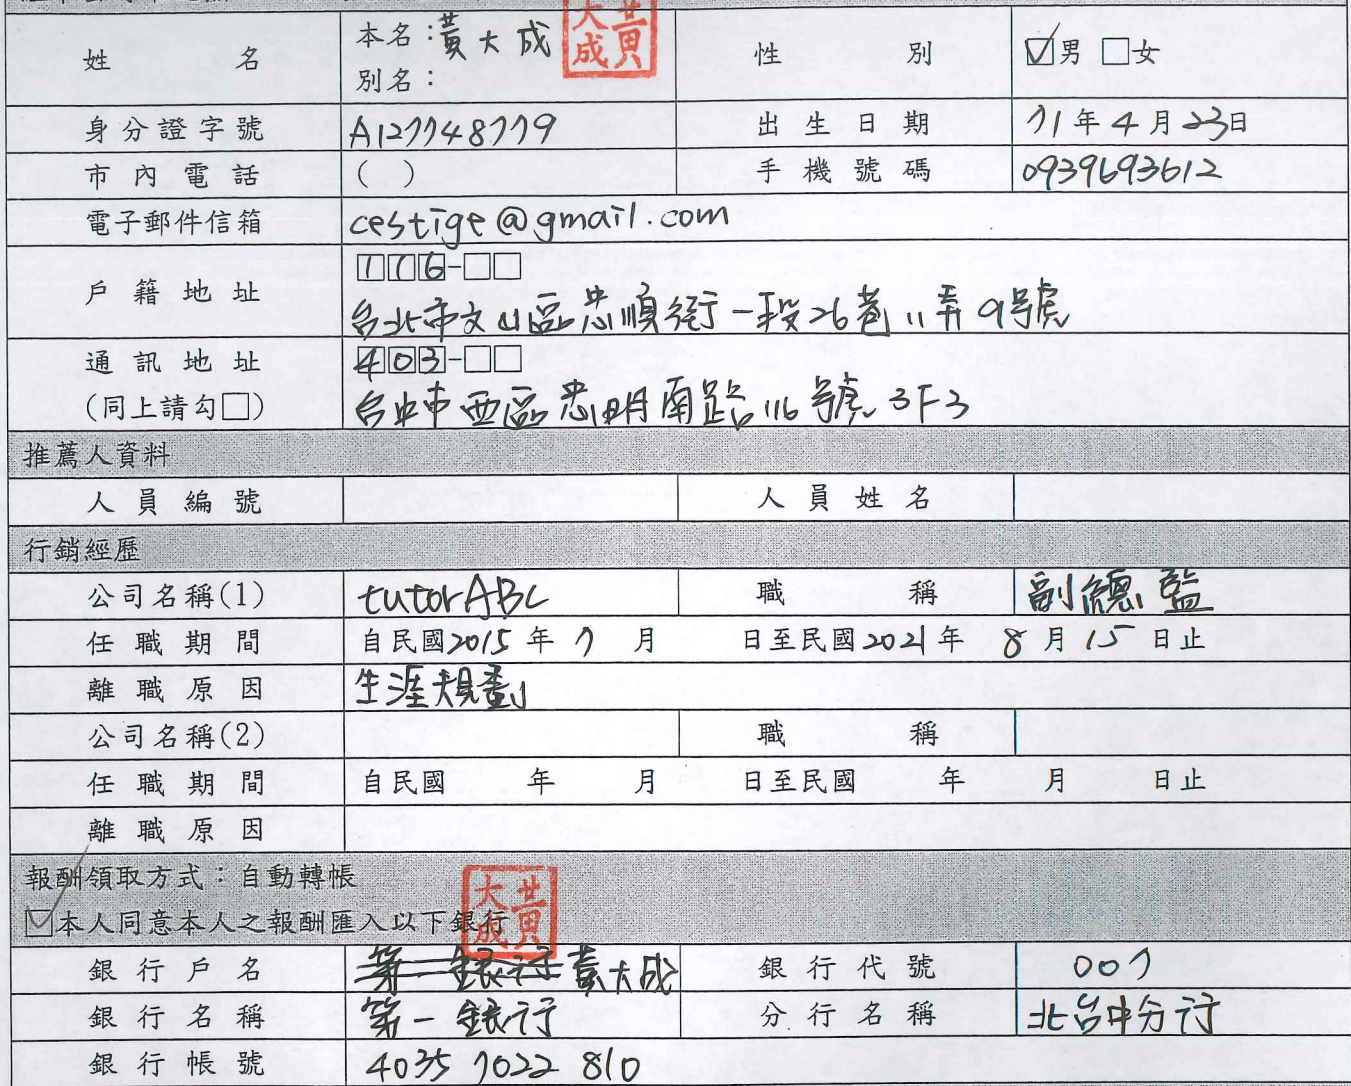 姓名 本名：黃大成 別名： 性別 ☑男 □女
黃大成
身分證字號 A127748779 出生日期 71年4月23日
市內電話 ( ) 手機號碼 0939693612
電子郵件信箱 cestige@gmail.com
戶籍地址 116-□□
台北市文山區忠順街一段26巷11弄9號
通訊地址 403-□□
(同上請勾□) 台中市西區忠明南路116號3F3
推薦人資料
人員編號 人員姓名
行銷經歷
公司名稱(1) tutorABC 職稱 副總監
任職期間 自民國2015年7月 日至民國2021年8月15日止
離職原因 生涯規劃
公司名稱(2) 職稱
任職期間 自民國 年 月 日至民國 年 月 日止
離職原因
報酬領取方式：自動轉帳
☑本人同意本人之報酬匯入以下銀行
黃大成
銀行戶名 第一銀行 黃大成 銀行代號 007
銀行名稱 第一銀行 分行名稱 北台中分行
銀行帳號 4035 7022 810